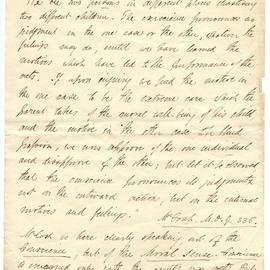 We see two persons in different places chastising
two different children. The conscience pronounces no
judgment in the one case or the other, whatever the
feelings may do, until we have learned the
motives which have led to the performance of the
acts. If upon enquiry we find the motive in
the one case to be the extreme care which the
parent takes of the moral well-being of his child
and the motive in the other case blind
passion, we now approve of the one individual
and disapprove of the other; but let it be observed
that the conscience pronounces its judgments
not on the outward actions, but on the internal
motives and feelings."
McCosh. M.D.G. 336.
McCosh is here clearly speaking not of the
Conscience, but of the Moral Sense. Conscience
is concerned only with the